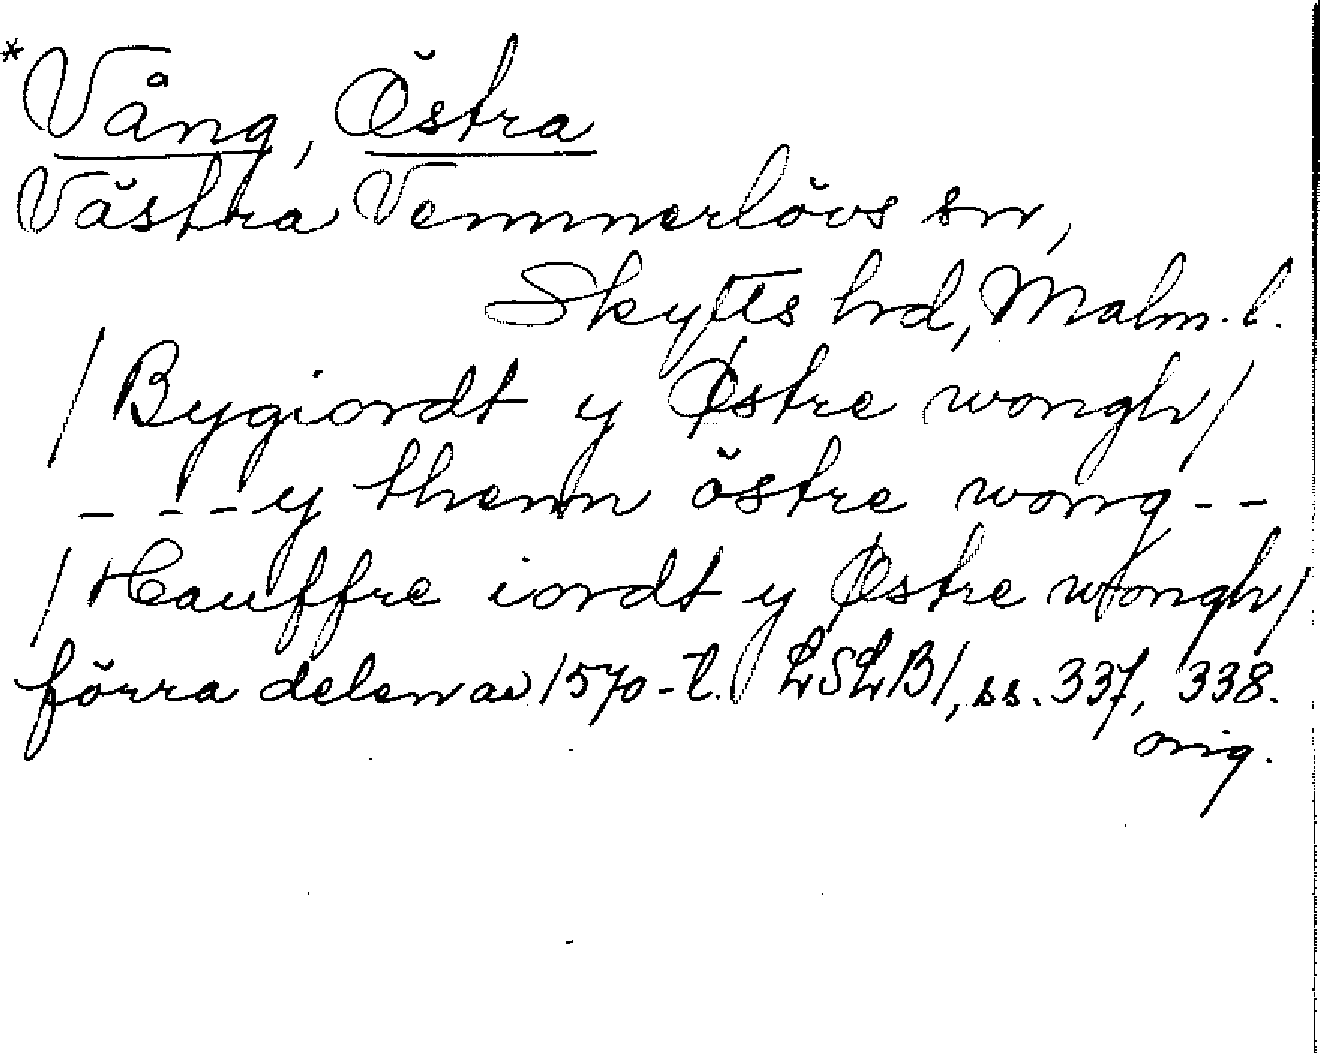 *Vång, Östra
Västra Vemmerlövs sn,
Skytts hd, Malm. l.
/Bygiordt y Østre wongh/
_ _ _ y thenn östre wong - -
/Hauffre iordt y Østre wongh/
förra delen av 1570-t. LSLB1, ss. 337, 338.
orig.